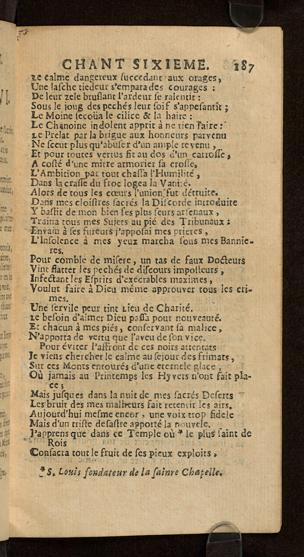 CHANT SIXIEME. 187
Le calme dangereux succedant aux orages,
Une lasche tiedeur s'empara des courages :
De leur zele bruslant l'ardeur se ralentit :
Sous le joug des pechés leur foif s'appesantit ;
Le Moine secoüa le cilice & la haire :
Le Chanoine indolent apprit à ne rien faire :
Le Prelat par la brigue aux honneurs parvenu
Ne sceut plus qu'abuser d'un ample revenu,
Et pour toutes vertus fit au dos d'un carrosse,
A costé d'une mitre armorier sa crosse,
L'Ambition par tout chassa l'Humilité,
Dans la crasse du froc logea la Vanité.
Alors de tous les cœurs l'union fut détruite.
Dans mes cloistres sacrés la Discorde introduite
Y bastit de mon bien ses plus seurs arsenaux,
Traina tous mes Sujets au pié des Tribunaux :
Envain à ses fureurs j'opposai mes prieres,
L'Insolence à mes yeux marcha sous mes Bannie-
res.
Pour comble de misere, un tas de faux Docteurs
Vint flatter les pechés de discours imposteurs,
Infectant les Esprits d'exécrables maximes,
Voulut faire à Dieu même approuver tous les cri-
mes.
Une servile peur tint Lieu de Charité.
Le besoin d'aimer Dieu passa pour nouveauté.
Et chacun à mes piés, conservant sa malice,
N'apporta de vertu que l'aveu de son vice.
Pour éviter l'affront de ces noirs attentats
Je viens chercher le calme au sejour des frimats,
Sur ces Monts entourés d'une eternele glace,
Où jamais au Printemps les Hyvers n'ont fait pla-
ce ;
Mais jusques dans la nuit de mes sacrés Deserts
Le bruit des mes malheurs fait retentir les airs.
Aujourd'hui mesme encor, une voix trop fidele
M'ait d'un triste desastre apporté la nouvele.
J'apprens que dans ce Temple où * le plus saint de
Rois
Consacra tout le fruit de ses pieux exploits,
* S. Louis fondateur de la sainte Chapelle.